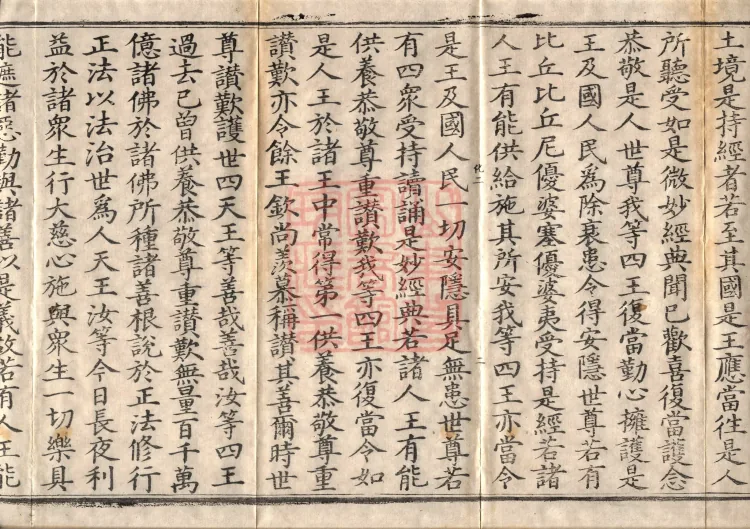 土境是持經者若至其國是王應當往是人
所聽受如是微妙經典聞已歡喜復當護念
恭敬是人世尊我等四王復當勤心擁護是
王及國人民為除衰患令得安隱世尊若有
比丘比丘尼優婆塞優婆夷受持是經若諸
人王有能供給施其所安我等四王亦當令
是王及國人民一切安隱具足無患世尊若
有四衆受持讀誦是妙經典若諸人王有能
供養恭敬尊重讃歎我等四王亦復當令如
是人王於諸王中常得第一供養恭敬尊重
讃歎亦令餘王欽尚羨慕稱讃其善爾時世
尊讃歎護世四天王等善哉善哉汝等四王
過去已曾供養恭敬尊重讃歎無量百千萬
億諸佛於諸佛所種諸善根說於正法修行
正法以法治世爲人天王汝等今日長夜利
益於諸衆生行大慈心施與衆生一切樂具
能遮諸惡勤與諸善以是義故若有人王能